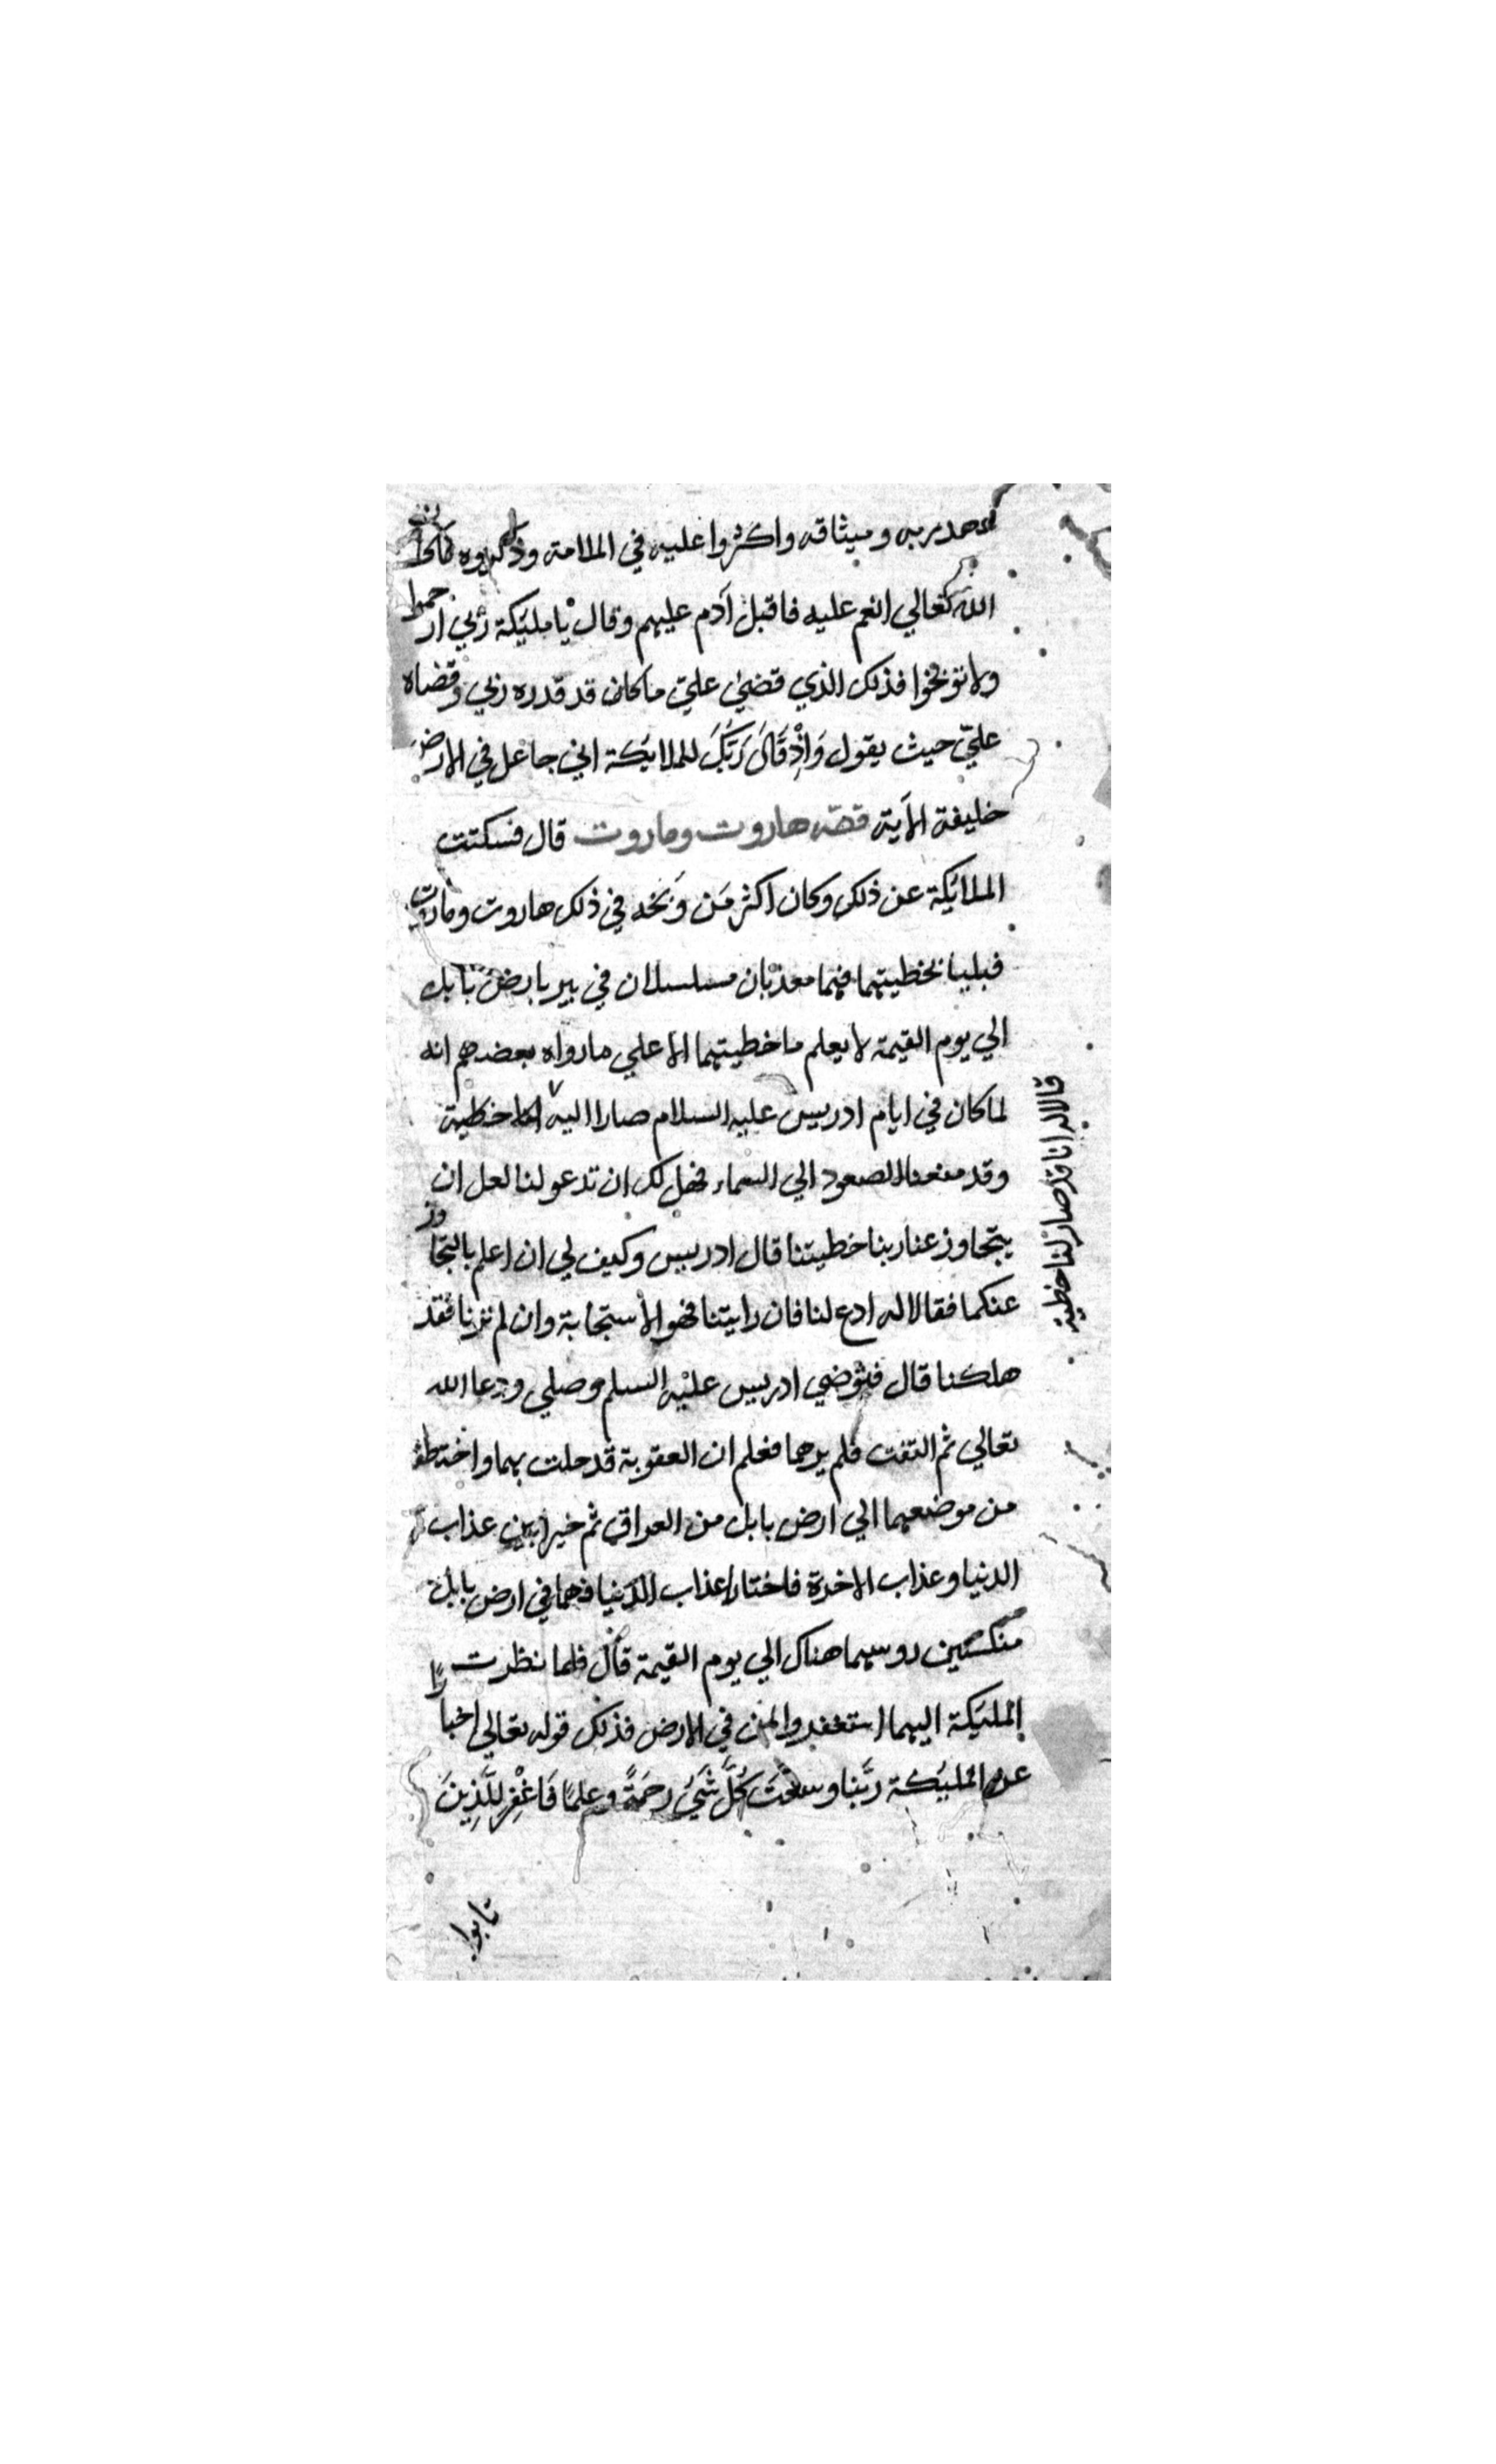 لعهد ربه وميثاقه واكثروا عليه في الملامة وذكروه
الله تعالي انعم عليه فاقبل آدم عليهم وقال يا مليكة ربي ارحموا
ولا توبخوا فذلك الذي قضي عليّ ما كان قد قدره ربي وقضاه
عليّ حيث يقول وَاِذْ قَالَ رَبُّكَ للملايكة اني جاعل في الارض
خليفة الآية قصّه هاروت وماروت قال فسكتت
الملائكة عن ذلك وكان اكثر مَن وَبّخه في ذلك هاروت وماروت
فبليا بخطيتهما فهما معذبان مسلسلان في بير بارض بابل
الي يوم القيمة لا يعلم ما خطيتهما الا علي ما رواه بعضهم انه
لما كان في ايام ادريس عليه السلام صارا اليه خطية
وقد منعنا الصعود الي السماء فهل لك ان تدعو لنا لعل ان
يتجاوز عنا ربنا خطيتنا قال ادريس وكيف لي ان اعلم بالتجاوز
عنكما فقالا له ادع لنا فان رايتنا فهو الاستجابة وان لم ترنا فقد
هلكنا قال فتوضي ادريس عليه السلم وصلي ودعا الله
تعالي ثم التفت فلم يرهما فعلم ان العقوبة قد حلت بهما واختطفا
من موضعهما الي ارض بابل من العراق ثم خيرا بين عذاب
الدنيا وعذاب الاخرة فاختارا عذاب الدنيا فهما في ارض بابل
منكسين روسهما هناك الي يوم القيمة قال فلما نظرت
المليكة اليهما استغفروا لمن في الارض فذلك قوله تعالي اخبارًا
عن المليَكة ربَّنا وسعتَ كُلَّ شَيْءٍ رحمَةً وعلمًا فَاغْفِر للَّذِينَ
تابوا
قالا له انا قد صار لنا خطية